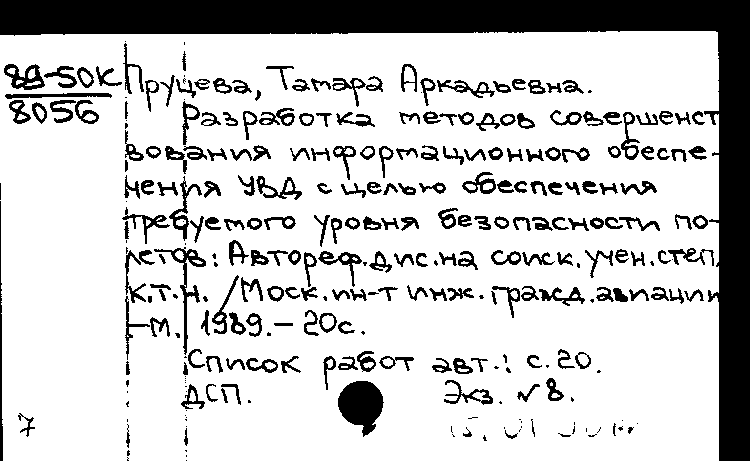 89-50К Пруцева, Тамара Аркадьевна.
8056 Разработка методов совершенст
вования информационного обеспе-
чения УВД с целью обеспечения
требуемого уровня безопасности по-
летов: Автореф.дис.на соиск.учен.степ.
к.т.н. /Моск.ин-т инж.гражд.авиации
-М. 1989.-20с.
Список работ авт.: с.20.
ДСП. Экз. №8.
7